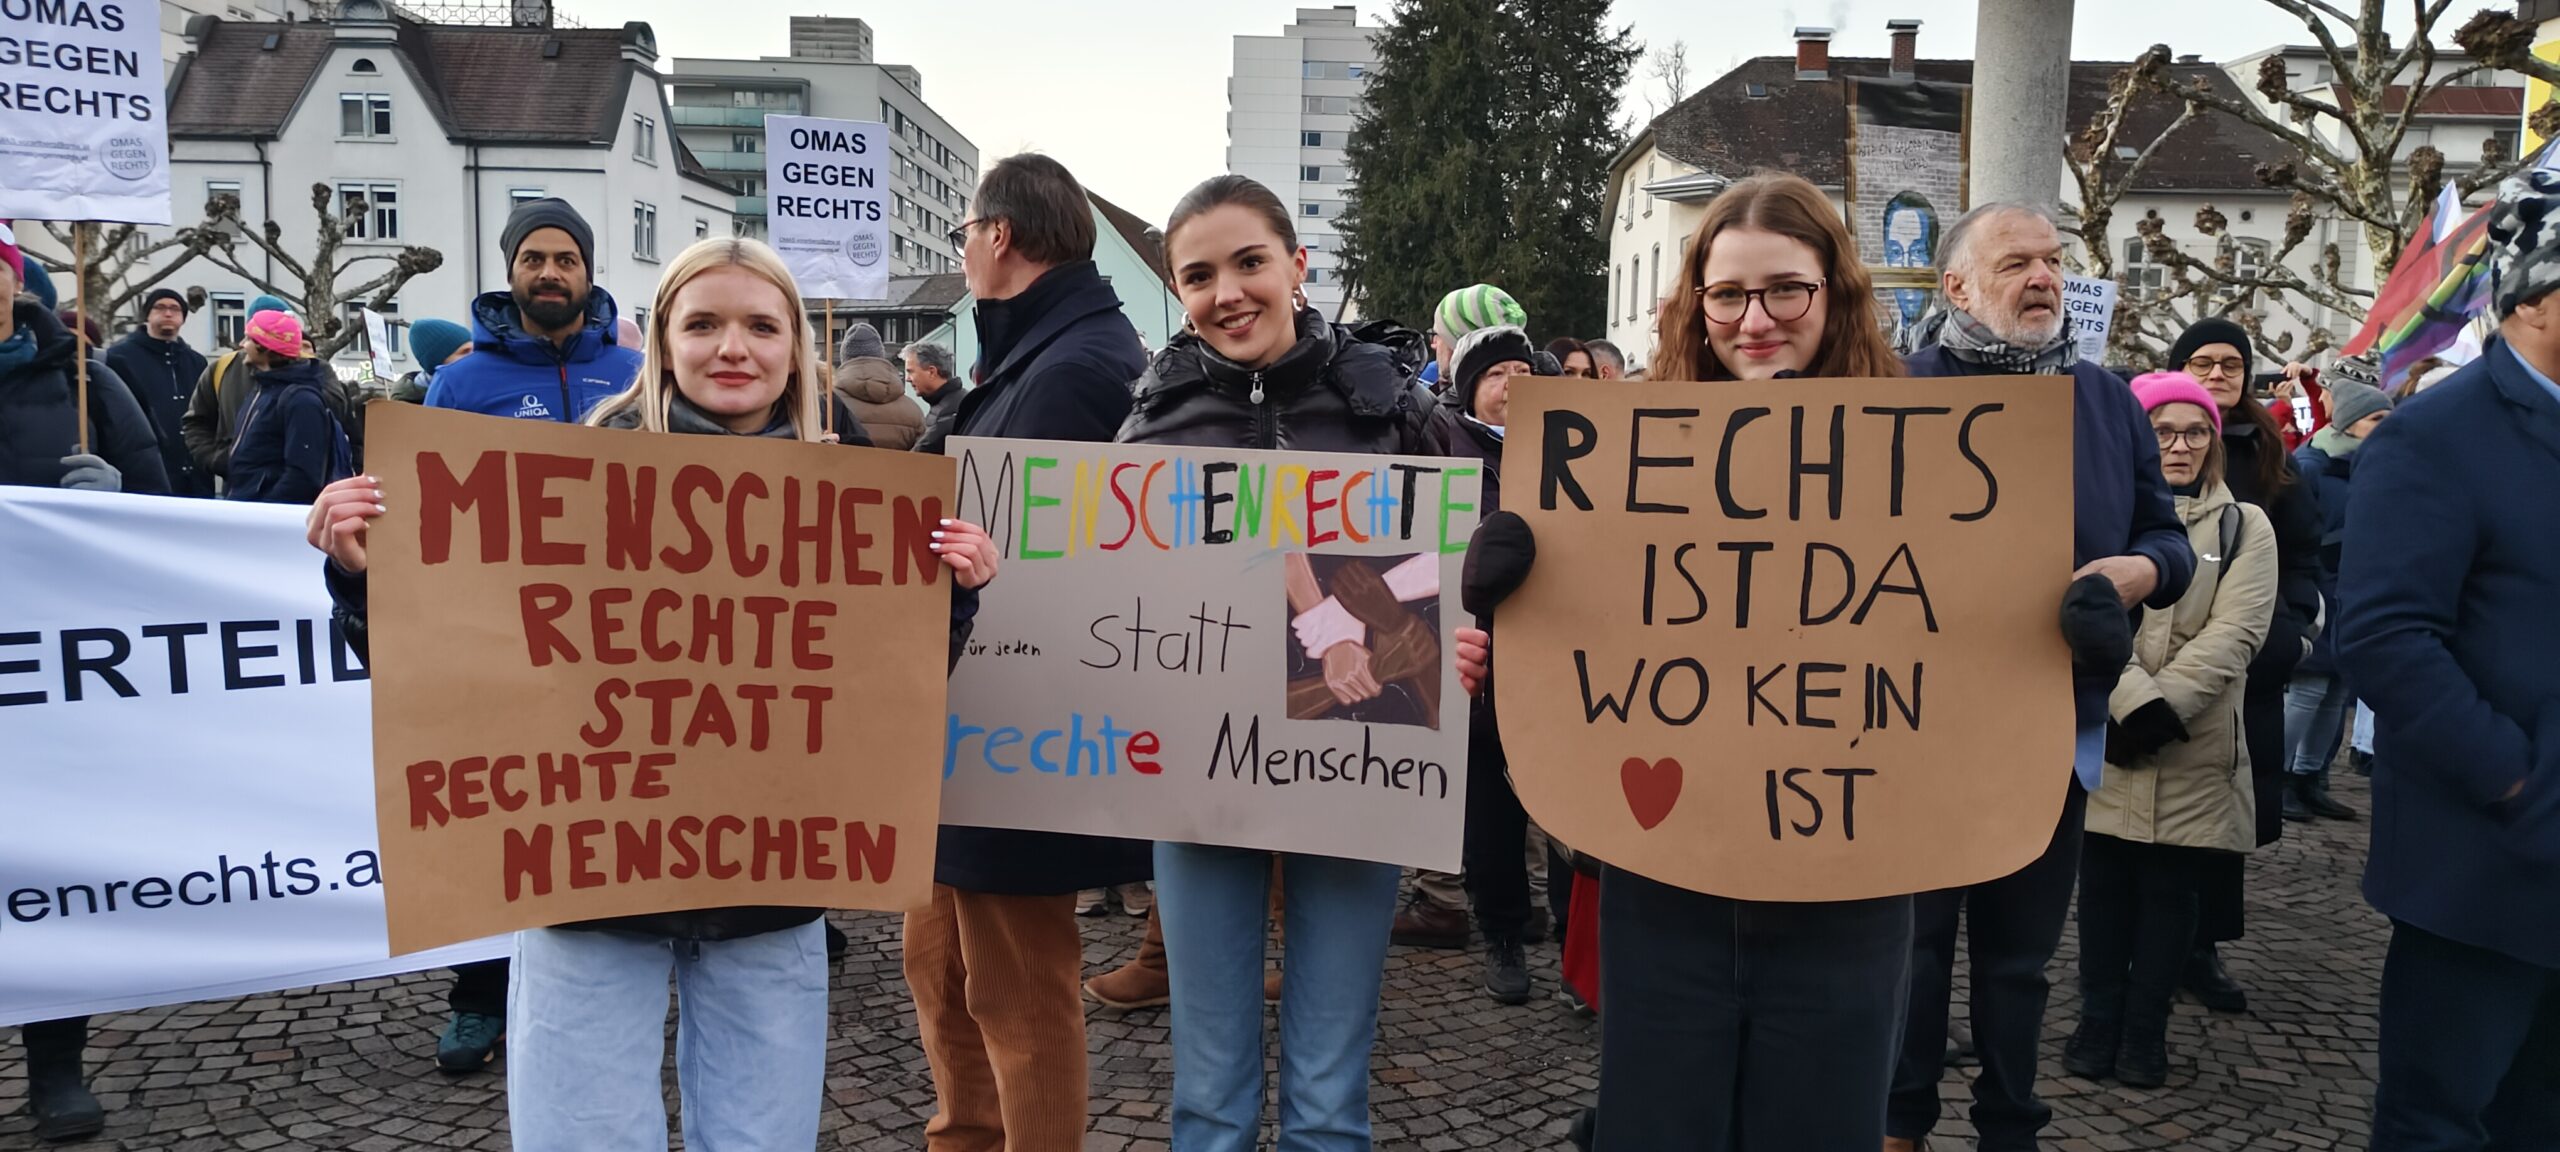 OMAS
GEGEN
RECHTS
OMAS
GEGEN
RECHTS
OMAS
GEGEN
RECHTS
OMAS
GEGEN
RECHTS
UNIQA
ERTEID
enrechts.a
MENSCHEN
RECHTE
STATT
RECHTE
MENSCHEN
MENSCHENRECHTE
für jeden statt
rechte Menschen
RECHTS
IST DA
WO KEIN
♥ IST
OMAS
GEGEN
HTS